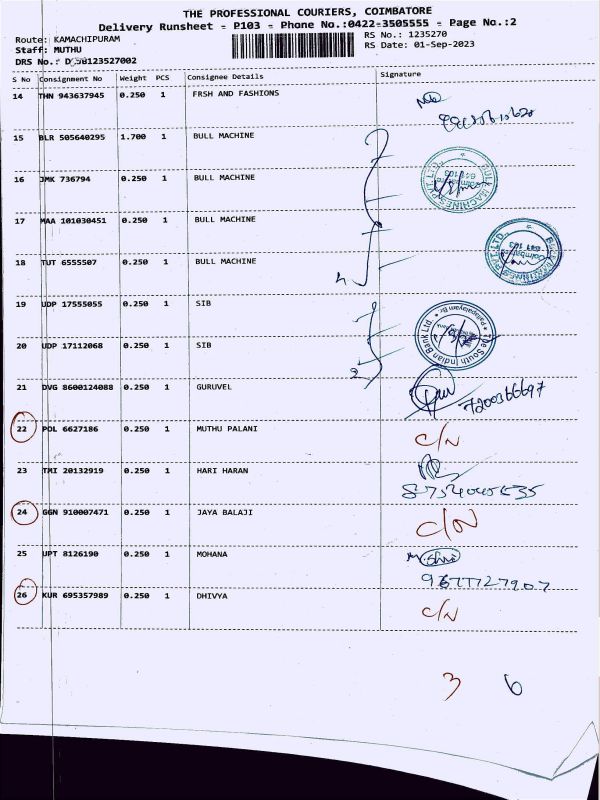 THE PROFESSIONAL COURIERS, COIMBATORE
Delivery Runsheet - P103 - Phone No.:0422-3505555 - Page No.:2
Route: KAMACHIPURAM
RS No.: 1235270
Staff: MUTHU
RS Date: 01-Sep-2023
DRS No.: 58123527002
S No Consignment No Weight PCS Consignee Details Signature
14 THN 943637945 0.250 1 FRSH AND FASHIONS
15 BLR 505640295 1.700 1 BULL MACHINE
16 JMK 736794 0.250 1 BULL MACHINE
17 MAA 101030451 0.250 1 BULL MACHINE
18 TUT 6555507 0.250 1 BULL MACHINE
4
19 UDP 17555055 0.250 1 SIB
20 UDP 17112068 0.250 1 SIB
The South Indian Bank Ltd.
2
21 DVG 8600124088 0.250 1 GURUVEL
7200366697
22 POL 6627186 0.250 1 MUTHU PALANI C/N
23 TMI 20132919 0.250 1 HARI HARAN
24 GGN 910007471 0.250 1 JAYA BALAJI C/N
25 UPT 8126190 0.250 1 MOHANA
9677727907
26 KUR 695357989 0.250 1 DHIVYA C/N
3 6